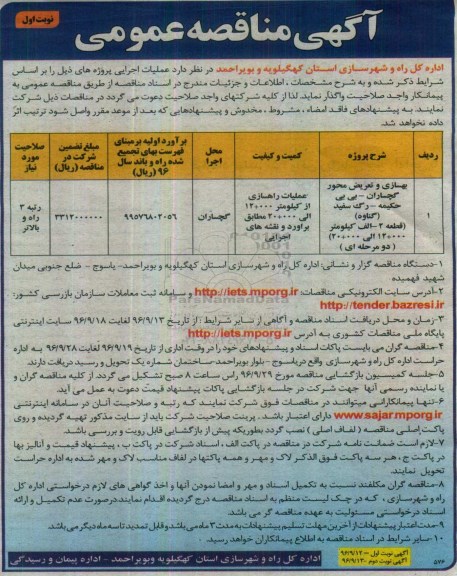 نوبت اول
آگهی مناقصه عمومی
اداره کل راه و شهرسازی استان کهگیلویه و بویراحمد در نظر دارد عملیات اجرایی پروژه های ذیل را بر اساس
شرایط ذکر شده و به شرح مشخصات ، اطلاعات و جزئیات مندرج در اسناد مناقصه از طریق مناقصه عمومی به
پیمانکار واجد صلاحیت واگذار نماید. لذا از کلیه شرکتهای واجد صلاحیت دعوت می گردد در مناقصات ذیل شرکت
نمایند. به پیشنهادهای فاقد امضاء ، مشروط ، مخدوش و پیشنهادهایی که بعد از موعد مقرر واصل شود ترتیب اثر
داده نخواهد شد.
ردیف
شرح پروژه
کمیت و کیفیت
محل اجرا
برآورد اولیه برمبنای فهرست بهای تجمیع شده راه و باند سال ۹۶ (ریال)
مبلغ تضمین شرکت در مناقصه (ریال)
صلاحیت مورد نیاز
۱
بهسازی و تعریض محور
گچساران - بی بی
حکیمه - برگ سفید
(گناوه)
(قطعه ۲- الف کیلومتر
۱۲+۰۰۰ الی ۲۰+۰۰۰)
( دو مرحله ای )
عملیات راهسازی
از کیلومتر ۱۲+۰۰۰
الی ۲۰+۰۰۰ مطابق
برآورد و نقشه های
اجرایی
گچساران
۹۹۵۷۶۸۰۲۰۵۶
۳۳۱۲۰۰۰۰۰۰
رتبه ۳
راه و
بالاتر
۱-دستگاه مناقصه گزار و نشانی: اداره کل راه و شهرسازی استان کهگیلویه و بویراحمد- یاسوج - ضلع جنوبی میدان
شهید فهمیده
۲-آدرس سایت الکترونیکی مناقصات: http://iets.mporg.ir و سامانه ثبت معاملات سازمان بازرسی کشور .
http://tender.bazresi.ir
۳-زمان و محل دریافت اسناد مناقصه و آگاهی از سایر شرایط : از تاریخ ۹۶/۹/۱۳ لغایت ۹۶/۹/۱۸ سایت اینترنتی
پایگاه ملی مناقصات کشوری به آدرس http://iets.mporg.ir
۴-مناقصه گران می بایست پاکات اسناد و پیشنهادهای خود را در وقت اداری از تاریخ ۹۶/۹/۱۹ لغایت ۹۶/۹/۲۸ به اداره
حراست اداره کل راه و شهرسازی واقع در یاسوج - بلوار بویراحمد- ساختمان شماره یک تحویل و رسید دریافت دارند.
۵-جلسه کمیسیون بازگشایی مناقصه مورخ ۹۶/۹/۲۹ راس ساعت ۸ صبح تشکیل می گردد از کلیه مناقصه گران و
یا نماینده رسمی آنها جهت شرکت در جلسه بازگشایی پاکات پیشنهاد قیمت دعوت به عمل می آید.
۶-تنها پیمانکارانی میتوانند در مناقصات فوق شرکت نمایند که رتبه و صلاحیت آنان در سامانه اینترنتی
www.sajar.mporg.ir دارای اعتبار باشد . پرینت صلاحیت شرکت باید از سایت مذکور تهیه گردیده و روی
پاکت اصلی مناقصه ( لفاف اصلی ) نصب گردد بطوریکه پیش از بازگشایی قابل رویت و بررسی باشد.
۷-لازم است ضمانت نامه شرکت در مناقصه در پاکت الف ، اسناد شرکت در پاکت ب ، پیشنهاد قیمت و آنالیز بها
در پاکت ج ، هر سه پاکت فوق الذکر لاک و مهر و همه پاکتها در لفاف مناسب لاک و مهر شده به اداره حراست
تحویل نمایند.
۸-مناقصه گران مکلفند نسبت به تکمیل اسناد و مهر و امضا نمودن آنها و اخذ گواهی های لازم درخواستی اداره کل
راه و شهرسازی ، که در چک لیست منظم به اسناد مناقصه درج گردیده اقدام نمایند.درصورت عدم تکمیل و ارائه
اسناد درخواستی مسئولیت به عهده مناقصه گر می باشد.
۹-مدت اعتبار پیشنهادات از آخرین مهلت تسلیم پیشنهادات به مدت ۳ ماه می باشد و قابل تمدید تا سه ماه دیگر می باشد.
۱۰-سایر شرایط در اسناد مناقصه به اطلاع پیمانکاران خواهد رسید.
آگهی نوبت اول ۹۶/۹/۱۲
آگهی نوبت دوم ۹۶/۹/۱۳
اداره کل راه و شهرسازی استان کهگیلویه وبویراحمد - اداره پیمان و رسیدگی
۵۷۶